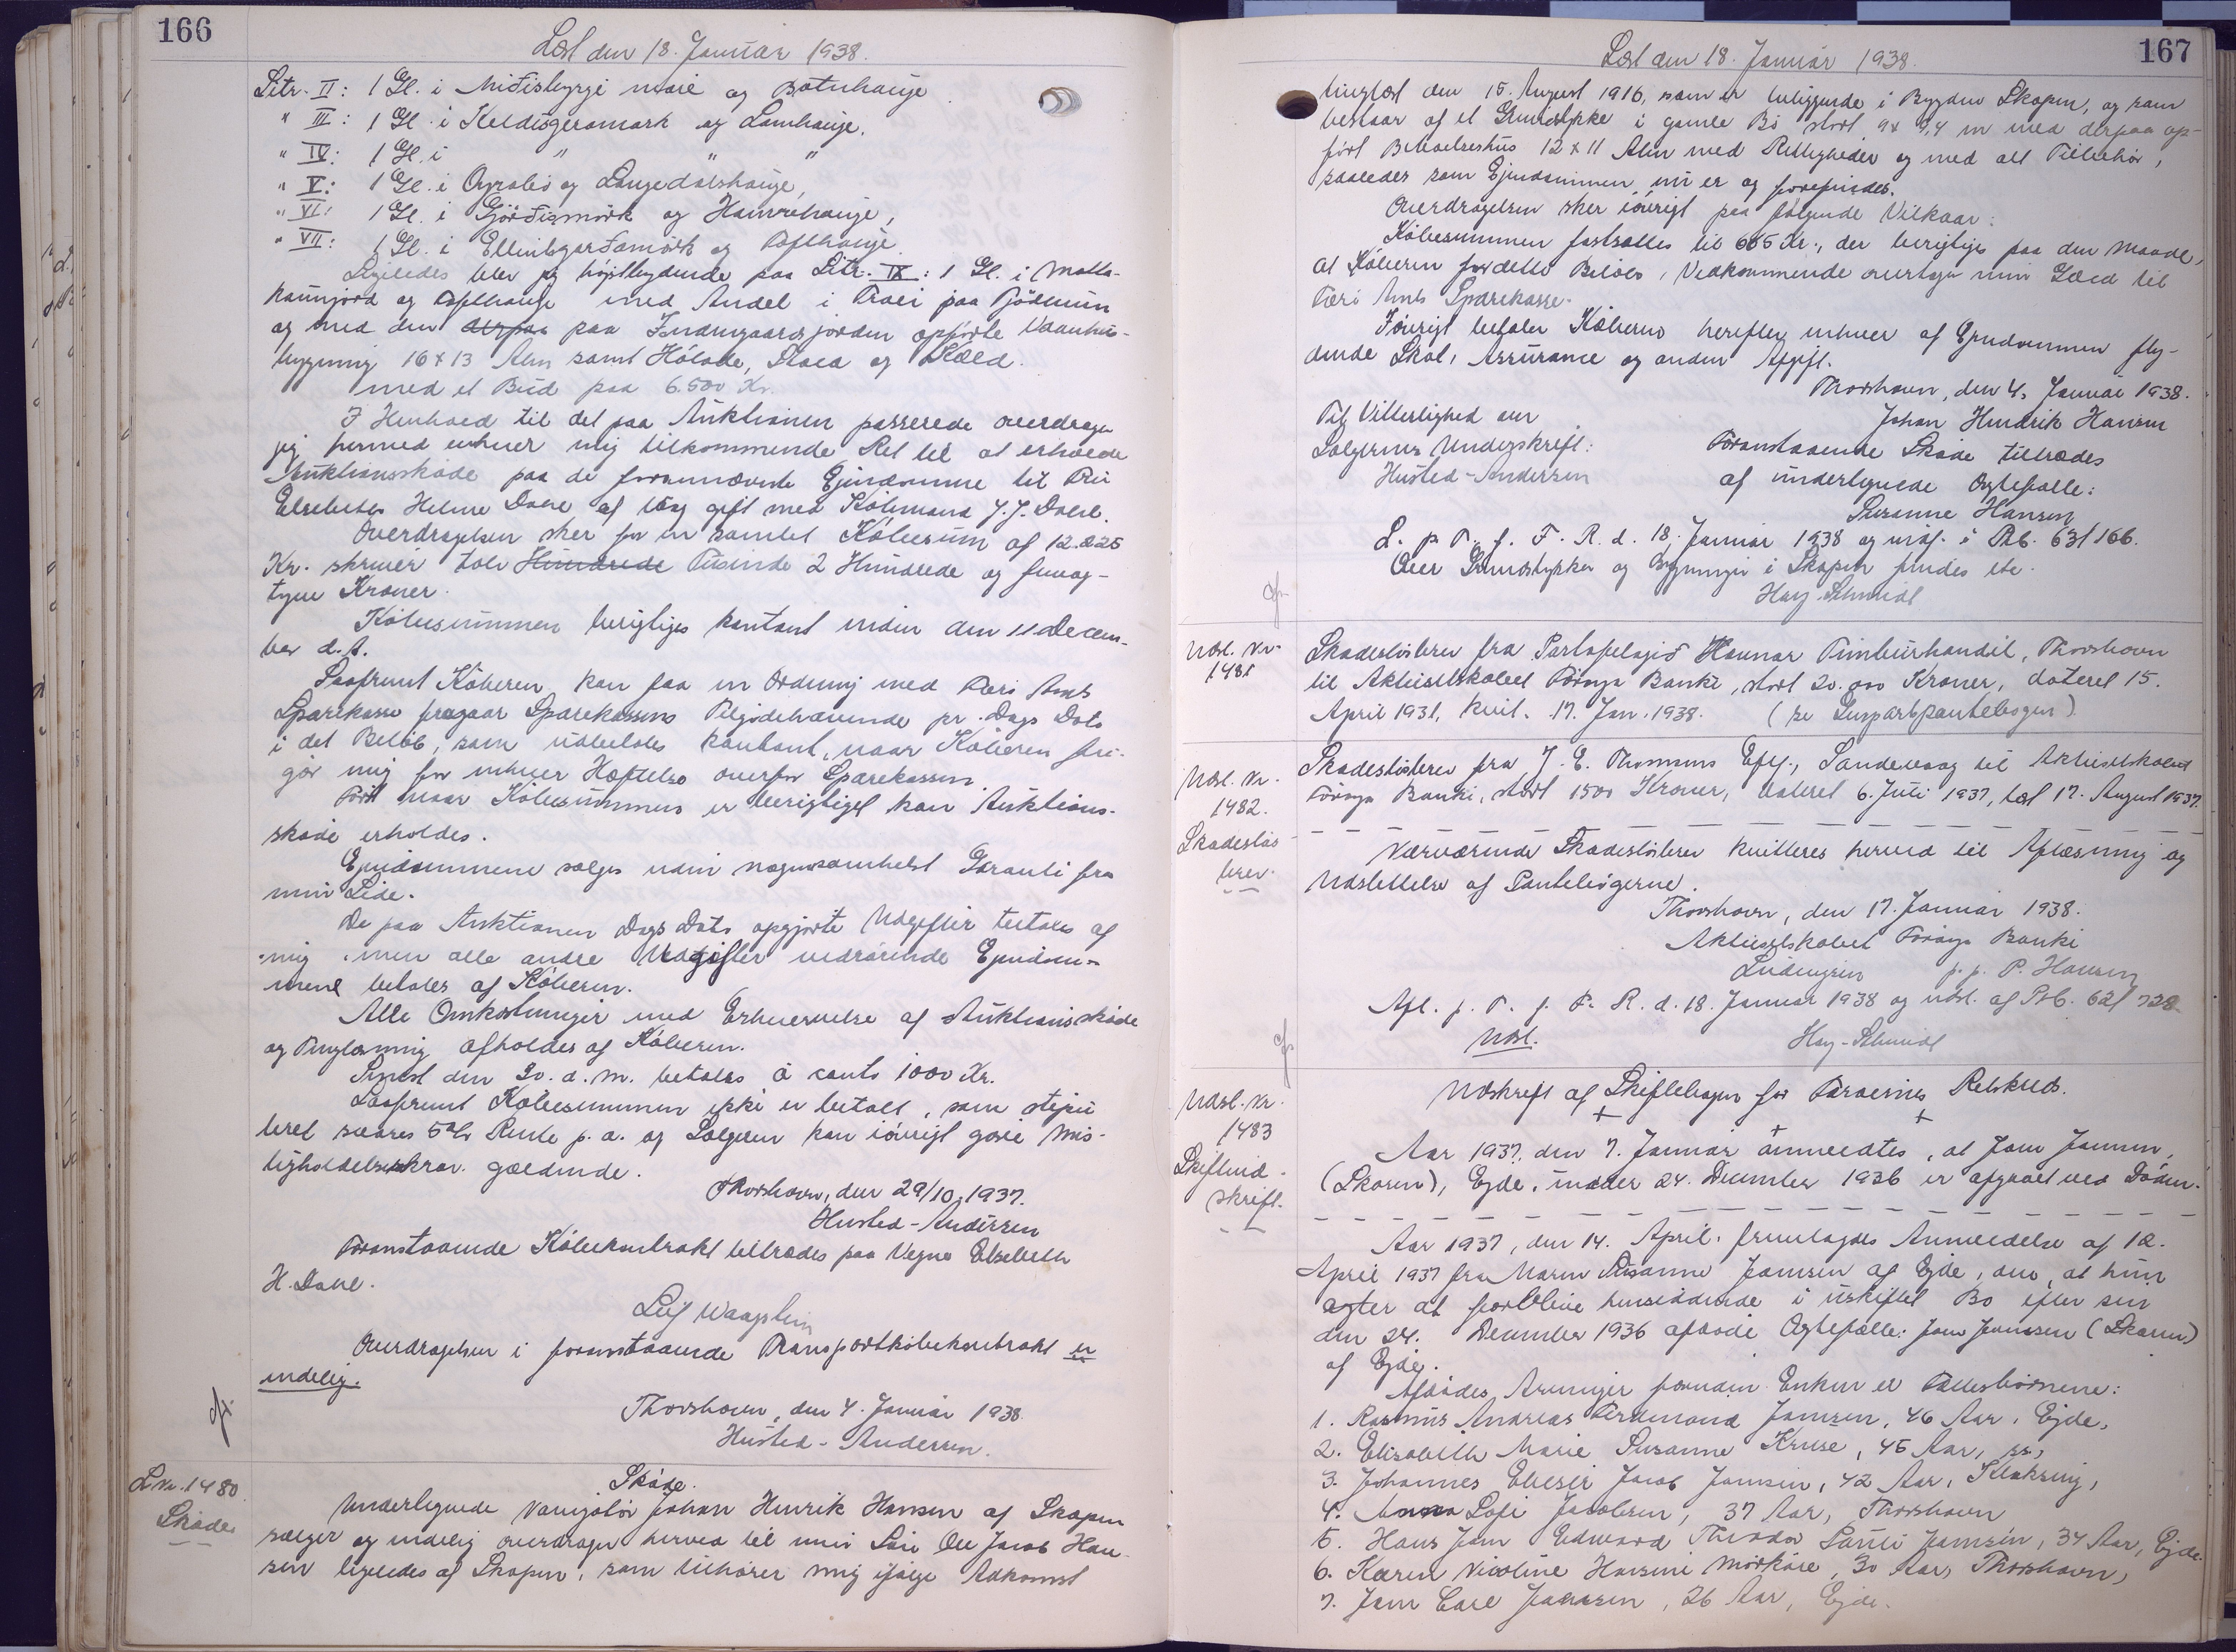 166
Læst den 18. Januar 1938.
Litr. II: 1 Gl. i Midisbyrgi mare og Botnhauge
" III: 1 Gl. i Keldisgeramork og Lamhauge,
" IV: 1 Gl. i " " "
" V: 1 Gl. i Oyrabø og Langedalshauge,
" VI: 1 Gl. i Gjørdismørk og Hamrehauge,
" VII: 1 Gl. i og Tofthauge
Ligeledes blev jeg højstbydende paa Litr. IX: 1 Gl. i Matta-
kannjord og Tofthauge med Andel i Træi paa
og med den derpaa paa Indengaardsjorden opførte Vaanhus-
bygning 16 x 13 Alen samt Hølade, Stald og Kæld.
med et Bud paa 6.500 Kr.
I Henhold til det paa Auktionen passerede overdrager
jeg hermed enhver mig tilkommende Ret til at erholde
Auktionsskøde paa de forannævnte Ejendomme til Fru
Elsebeth Helene Dahl af Vaag gift med Købmand J. J. Dahl.
Overdragelsen sker for en samlet Købesum af 12.225
Kr. skriver tolv Hundrede Tusinde 2 Hundrede og femog-
tyve Kroner.
Købesummen berigtiges kontant inden den 11 Decem-
ber d.A.
Saafremt Køberen kan faa en Ordning med Færø Amts
Sparekasse fragaar Sparekassens Tilgodehavende pr. Dags Dato
i det Beløb, som udbetales kontant, naar Køberen fri-
gør mig for enhver Hæftelse overfor Sparekassen.
Først naar Købesummen er berigtiget kan Auktions-
skøde erholdes.
Ejendommene sælges uden nogensomhelst Garanti fra
min Side.
De paa Auktionen Dags Dato opgjorte Udgifter betales af
mig, men alle andre Udgifter vedrørende Ejendom-
mene betales af Køberen.
Alle Omkostninger med Erhvervelse af Auktionsskøde
og Tinglæsning afholdes af Køberen.
Senest den 30. d.M. betales à conto 1000 Kr.
Saafremt Købesummen ikke er betalt, som stipu-
leret svares 5% Rente p.a. og Sælgeren kan iøvrigt gøre Mis-
ligholdelseskrav gældende.
Thorshavn, den 29/10 1937.
Husted-Andersen
Foranstaaende Købekontrakt tiltrædes paa Vegne Elsebeth
H. Dahl.
Leif Waagstein
Overdragelsen i foranstaaende Transportkøbekontrakt er
endelig.
Thorshavn, den 4. Januar 1938.
Husted-Andersen.
L.Nr. 1480
Skøde
Skøde.
Undertegnede Johan Henrik Hansen af Skopen
sælger og endelig overdrager herved til min Søn Ole Jacob Han-
sen ligeledes af Skopen, som tilhører mig ifølge Adkomst
167
Læst den 18. Januar 1938.
tinglæst den 15. August 1916, som er beliggende i Bygden Skopen, og som
bestaar af et Grundstykke i gamle Bø stort 9 x 9,4 m med derpaa op-
ført Beboelseshus 12 x 11 Alen med Rettigheder og med alt Tilbehør,
saaledes som Ejendommen nu er og forefindes.
Overdragelsen sker iøvrigt paa følgende Vilkaar:
Købesummen fastsættes til 665 Kr., der berigtiges paa den Maade,
at Køberen for dette Beløbs Vedkommende overtager min Gæld til
Færø Amts Sparekasse.
Iøvrigt betaler Køberen herefter enhver af Ejendommen fly-
dende Skat, Assurance og anden Afgift.
Thorshavn, den 4. Januar 1938.
Til Vitterlighed om
Johan Hendrik Hansen
Sælgerens Underskrift:
Foranstaaende Skøde tiltrædes
Husted-Andersen
af undertegnede Ægtefælle:
Susanne Hansen
L. p. T. f. F. R. d. 18. Januar 1938 og indf. i Ptb. 63/166.
Over Grundstykker og Bygninger i Skopen findes etc.
Hay-Schmidt
Udsl. Nr.
1481
Skadesløsbrev fra Partafelagið Havnar Timburhandil, Thorshavn
til Aktieselskabet Føroya Banki, stort 20.000 Kroner, dateret 15.
April 1931, kvit. 17. Jan. 1938. (se Luspartpantebogen)
Udsl. Nr.
1482.
Skadesløs-
brev.
Skadesløsbrev fra J. E. Thomsens Eftf., Sandevaag til Aktieselskabet
Føroya Banki, stort 1500 Kroner, dateret 6. Juli 1937, læst 17. August 1937.
Nærværende Skadesløsbrev kvitteres herved til Aflæsning og
Udslettelse af Pantebøgerne.
Thorshavn, den 17. Januar 1938.
Aktieselskabet Føroya Banki
p.p. P. Hansen
Afl. p. T. f. F. R. d. 18. Januar 1938 og udsl. af Ptb. 62/728.
Udsl.
Hay-Schmidt
Udsl. Nr.
1483
Skifteud-
skrift.
Udskrift af Skiftebogen for Færøernes Retskreds.
Aar 1937, den 7. Januar anmeldtes, at Jens Jensen,
(Skoren), Ejde, under 24. December 1936 er afgaaet ved Døden.
Aar 1937, den 14. April, fremlagdes Anmeldelse af 12.
April 1937 fra Maren Susanne Joensen af Ejde, om, at hun
agter at forblive hensiddende i uskiftet Bo efter sin
den 24. December 1936 afdøde Ægtefælle: Jens Jensen (Skoren)
af Ejde.
Afdødes Arvinger foruden Enken er Fællesbørnene:
1. Rasmus Andreas Ferdinand Joensen, 46 Aar, Ejde,
2. Elisabeth Marie Susanne Kruse, 45 Aar, ss.,
3. Johannes Elieser Jacob Joensen, 42 Aar, Klakring,
4. Anna Sofi Jacobsen, 37 Aar, Thorshavn
5. Hans Jens Edward Theodor Joensen, 34 Aar, Ejde.
6. Karen Nicoline Hansine Mørkøre, 30 Aar, Thorshavn,
7. Jens Carl Joensen, 26 Aar, Ejde.